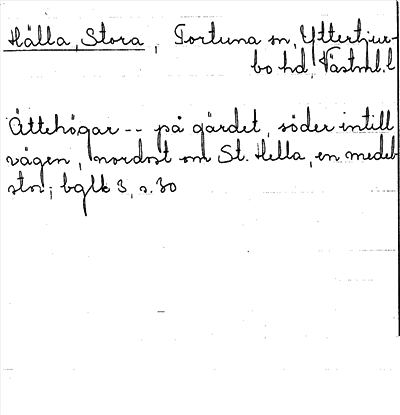 Hälla, Stora, Tortuna sn, Yttertjur-
bo hd, Västml. l
Ättehögar -- på gärdet, söder intill
vägen, nordost om St. Hella, en medel-
stor; bglt 3, s. 30